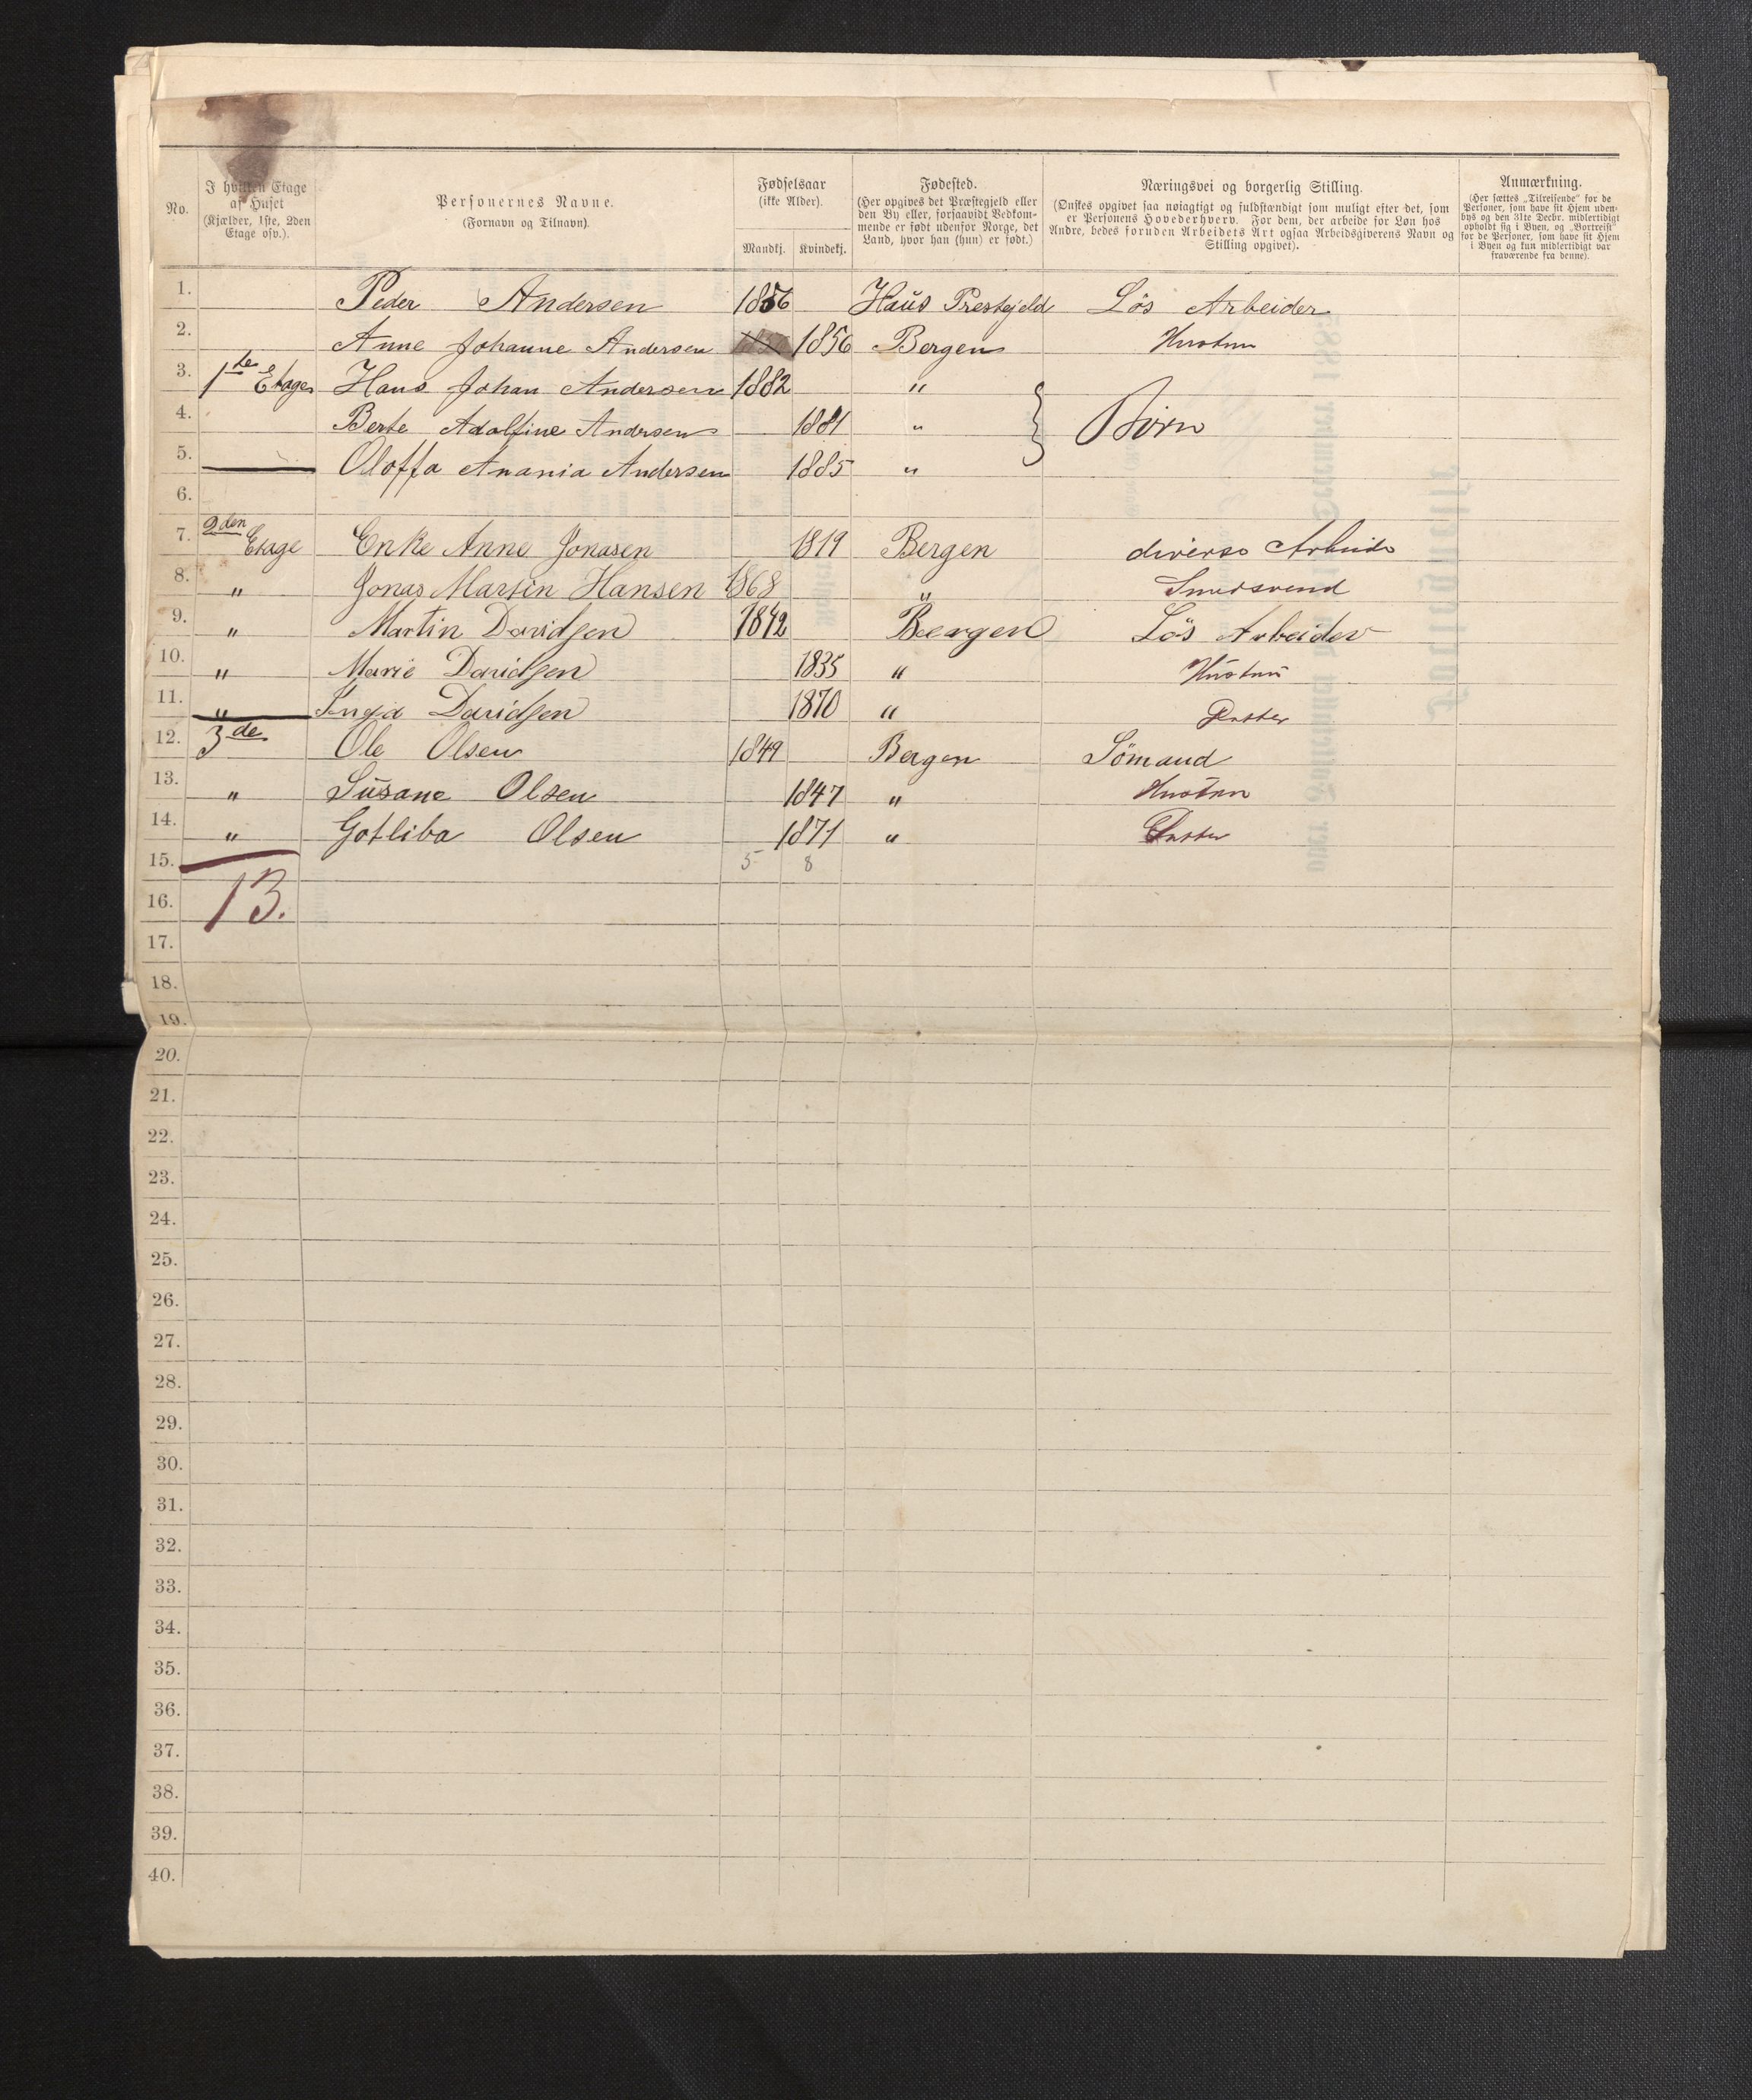 No.
I hvilken Etage af Huset (Kjælder, 1ste, 2den Etage osv.).
Personernes Navne.
(Fornavn og Tilnavn).
Fødselsaar
(ikke Alder).
Mandkj. Kvindekj.
Fødested.
(Her opgives det Præstegjeld eller
den By eller, forsaavidt Vedkom-
mende er født udenfor Norge, det
Land, hvor han (hun) er født.)
Næringsvei og borgerlig Stilling.
(Ønskes opgivet saa nøiagtigt og fuldstændigt som muligt efter det, som
er Personens Hovederhverv. For dem, der arbeide for Løn hos
Andre, bedes foruden Arbeidets Art ogsaa Arbeidsgiverens Navn og
Stilling opgivet).
Anmærkning.
(Her sættes „Tilreisende" for de
Personer, som have sit Hjem uden-
bys og den 31te Decbr. midlertidigt
opholdt sig i Byen, og „Bortreist"
for de Personer, som have sit Hjem
i Byen og kun midlertidigt var
fraværende fra denne).
1. Peder Andersen 1856 Haüs Prestejeld Lös Arbeider
2. Anne Johanne Andersen 1856 Bergen Hustru
3. 1te Etage Hans Johan Andersen 1882 "
4. Berte Adolfine Andersen 1881 " Börn
5. Oloffa Anania Andersen 1885 "
6.
7. 2den Etage Enke Anne Jonasen 1819 Bergen diverse Arbeide
8. " Jonas Martin Hansen 1868 " Smedsvend
9. " Martin Davidsen 1842 Beergen Lös Arbeider
10. " Marie Davidsen 1835 " Hustru
11. " Inga Davidsen 1870 " Datter
12. 3de Ole Olsen 1849 Bergen Sömand
13. " Süsane Olsen 1847 " Hustru
14. " Gotliba Olsen 1871 " Datter
15. 5 8
16. 13.
17.
18.
19.
20.
21.
22.
23.
24.
25.
26.
27.
28.
29.
30.
31.
32.
33.
34.
35.
36.
37.
38.
39.
40.